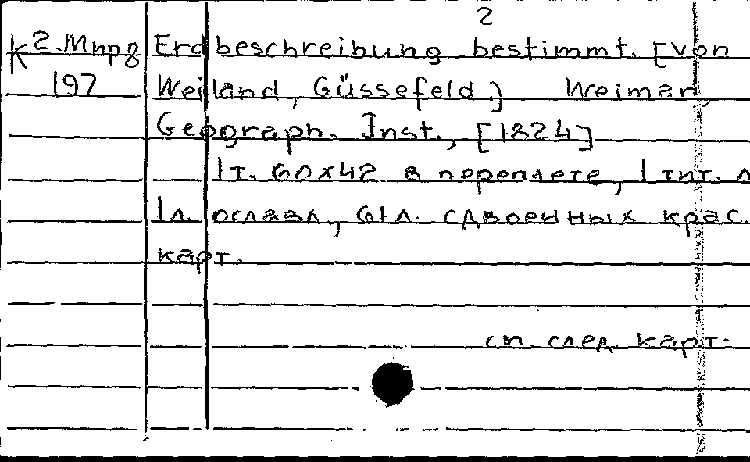 2
K 2.Мпрз Erdbeschreibung bestimmt. [von
197 Weiland, Güssefeld.] Weimar
Geograph. Inst., [1824]
1т. 60x42 в переплете, 1 тит. л
1л. оглавл, 61л. сдвоенных крас.
карт.
см. след. карт.